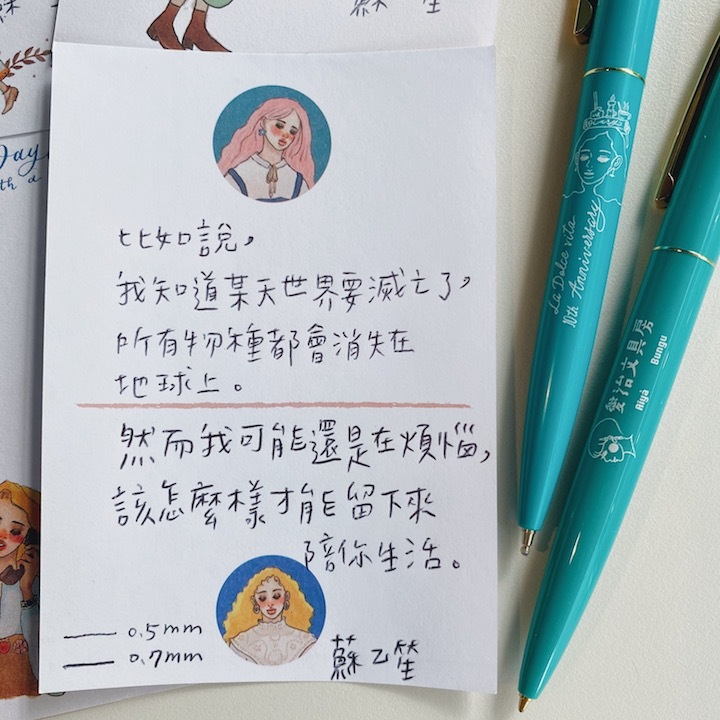 蘇
蘇乙笙
Day
th a
比如說,
我知道某天世界要滅亡了,
所有物種都會消失在
地球上。
然而我可能還是在煩惱,
該怎麼樣才能留下來
陪你生活。
0.5mm
0.7mm
蘇乙笙
La Dolce vita
10th Anniversary
愛治文具房
Aiyà Bungu